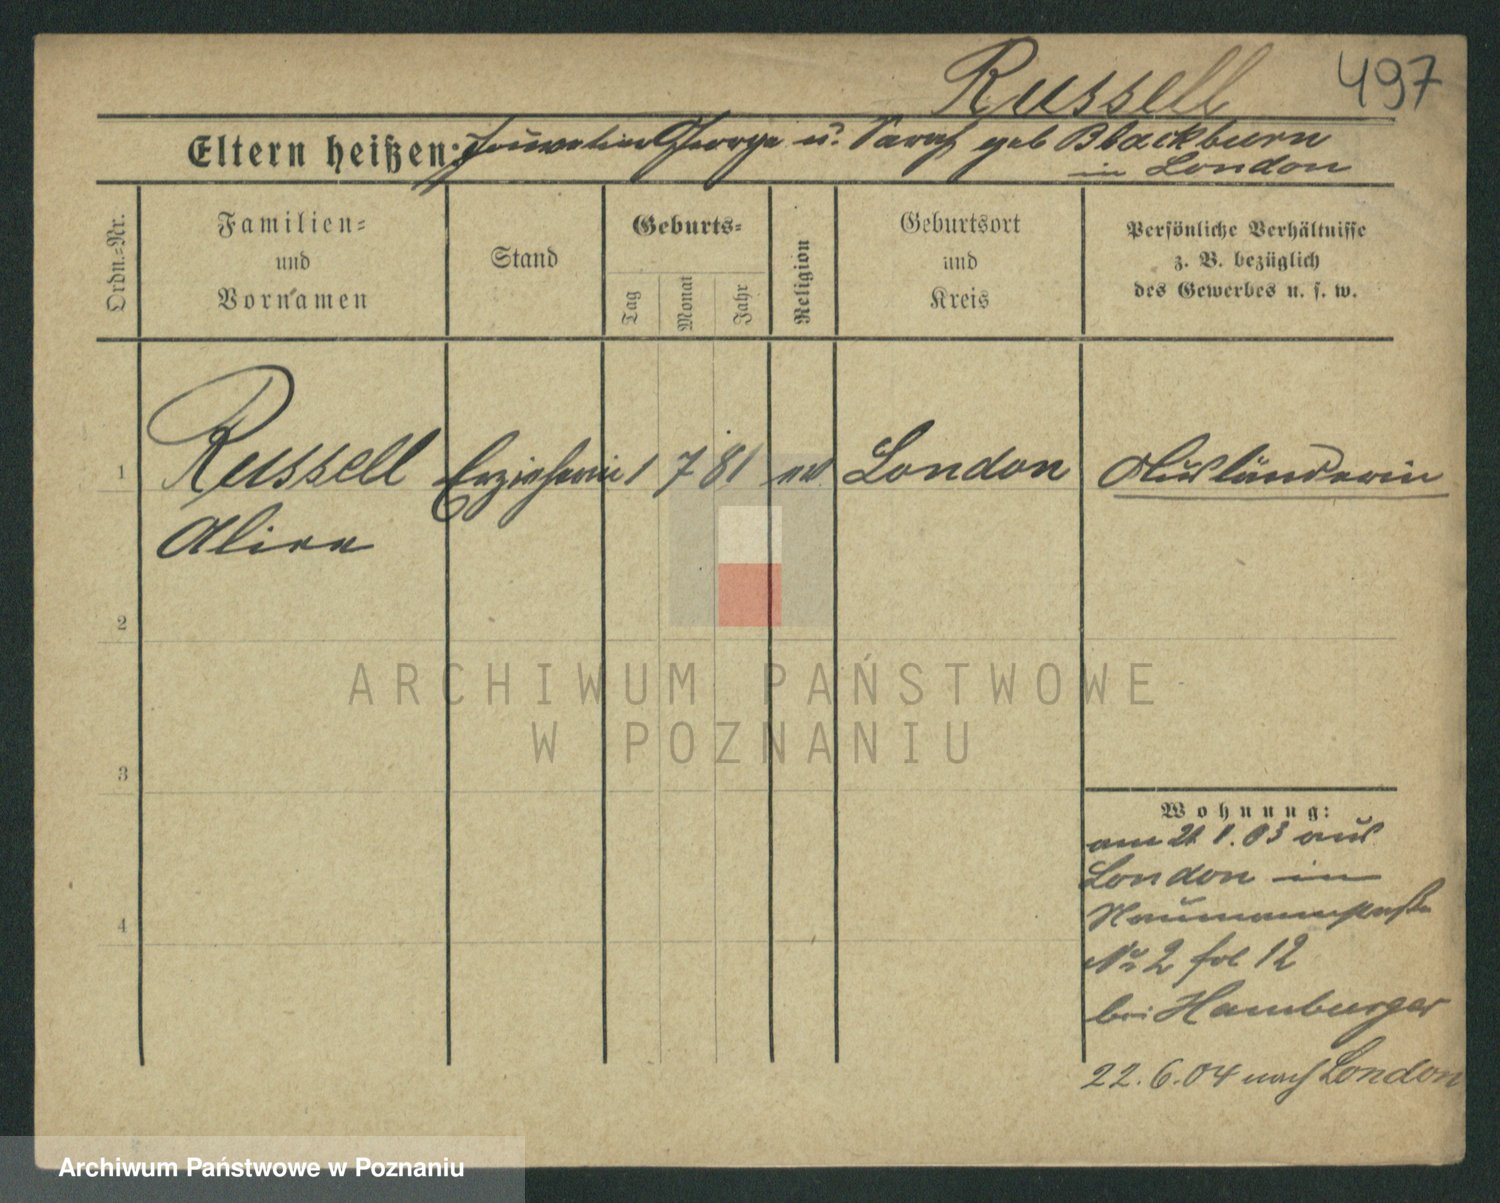 Russell 497
Eltern heißen: Juwelier George u. Sarah geb Blackburn
in London
Ordn.=Nr.
Familien=
und
Vornamen
Stand
Geburts=
Tag
Monat
Jahr
Religion
Geburtsort
und
Kreis
Persönliche Verhältnisse
z. B. bezüglich
des Gewerbes u. s. w.
1 Russell Erzieherin 1 7 81 ev. London Ausländerin
Alice
2
ARCHIWUM PAŃSTWOWE
W POZNANIU
3
Wohnung:
am 21 1. 03 aus
London in
Naumannstraße
No 2 fol 12
4
bei Hamburger
22.6.04 nach London
Archiwum Państwowe w Poznaniu